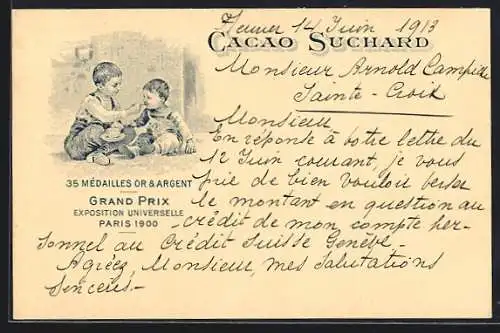 14 Juin 1913
CACAO SUCHARD
Monsieur Arnold Campiche
Sainte-Croix
Monsieur
En réponse à votre lettre du
12 Juin courant, je vous
prie de bien vouloir verser
le montant en question au
crédit de mon compte per-
sonnel au Crédit Suisse Genève.-
Agréez, Monsieur, mes salutations
sincères.-
35 MÉDAILLES OR & ARGENT
GRAND PRIX
EXPOSITION UNIVERSELLE
PARIS 1900